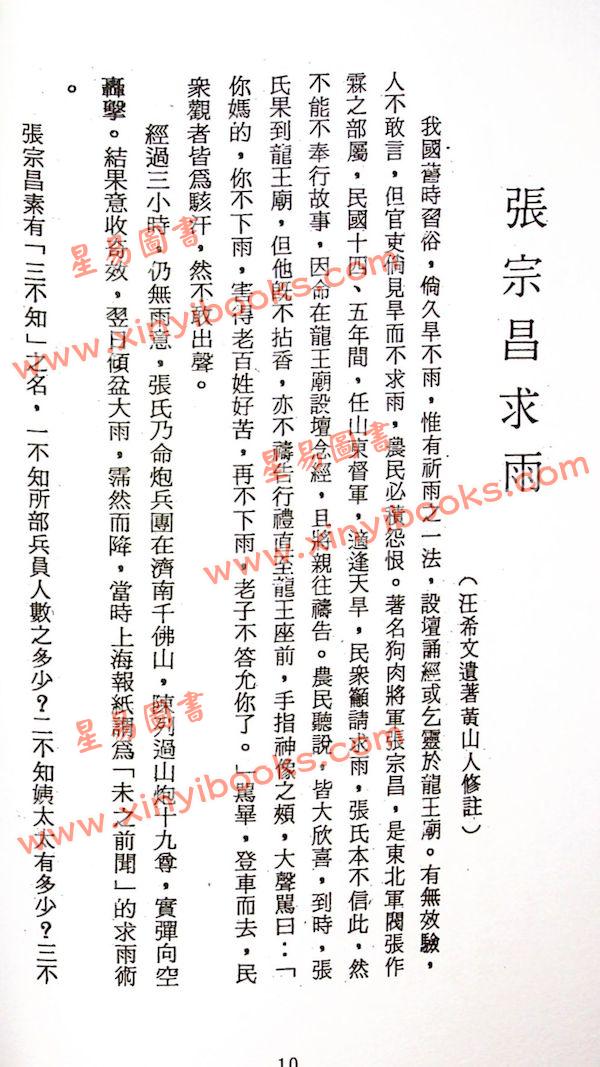 張宗昌求雨
（汪希文遺著黃山人修註）
我國舊時習俗，倘久旱不雨，惟有祈雨之一法，設壇誦經或乞靈於龍王廟。有無效驗，
人不敢言，但官吏倘見旱而不求雨，農民必積怨恨。著名狗肉將軍張宗昌，是東北軍閥張作
霖之部屬，民國十四、五年間，任山東督軍，適逢天旱，民衆籲請求雨，張氏本不信此，然
不能不奉行故事，因命在龍王廟設壇念經，且將親往禱告。農民聽說，皆大欣喜，到時，張
氏果到龍王廟，但他既不拈香，亦不禱告行禮直至龍王座前，手指神像之頰，大聲駡曰：「
你媽的，你不下雨，害得老百姓好苦，再不下雨，老子不答允你了。」駡畢，登車而去，民
衆觀者皆爲駭汗，然不敢出聲。
經過三小時，仍無雨意，張氏乃命炮兵團在濟南千佛山，陳列過山炮十九尊，實彈向空
轟擊。結果意收奇效，翌日傾盆大雨，霈然而降，當時上海報紙謂爲「未之前聞」的求雨術
。
張宗昌素有「三不知」之名，一不知所部兵員人數之多少？二不知姨太太有多少？三不
10
星易圖書
www.xinyibooks.com
星易圖書
www.xinyibooks.com
星易圖書
www.xinyibooks.com